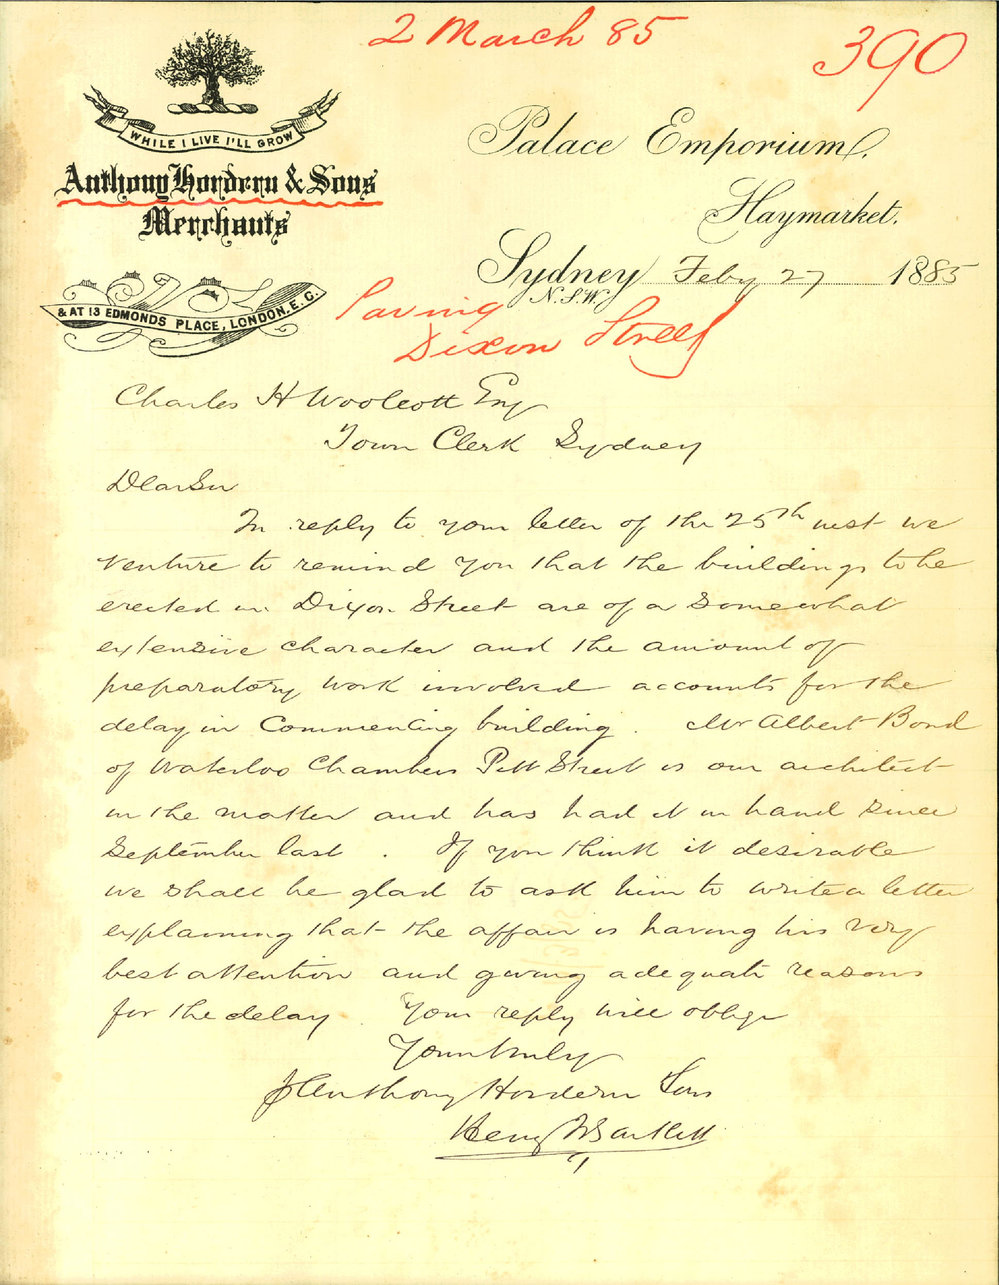 2 March 85
390
WHILE I LIVE I'LL GROW
Anthony Hordern & Sons
Merchants
& AT 13 EDMONDS PLACE, LONDON. E.C.
Palace Emporium,
Haymarket.
Sydney Feby 27 1885
N.S.W.
Paving
Dixon Street
Charles H Woolcott Esq
Town Clerk Sydney
Dear Sir
In reply to your letter of the 25th inst we
venture to remind you that the buildings to be
erected in Dixon Street are of a somewhat
extensive character and the amount of
preparatory work involved accounts for the
delay in commencing building. Mr Albert Bond
of Waterloo Chambers Pitt Street is our architect
in the matter and has had it in hand since
September last. If you think it desirable
we shall be glad to ask him to write a letter
explaining that the affair is having his very
best attention and giving adequate reasons
for the delay. Your reply will oblige
Yours truly
Anthony Hordern Sons
Henry Bartlett